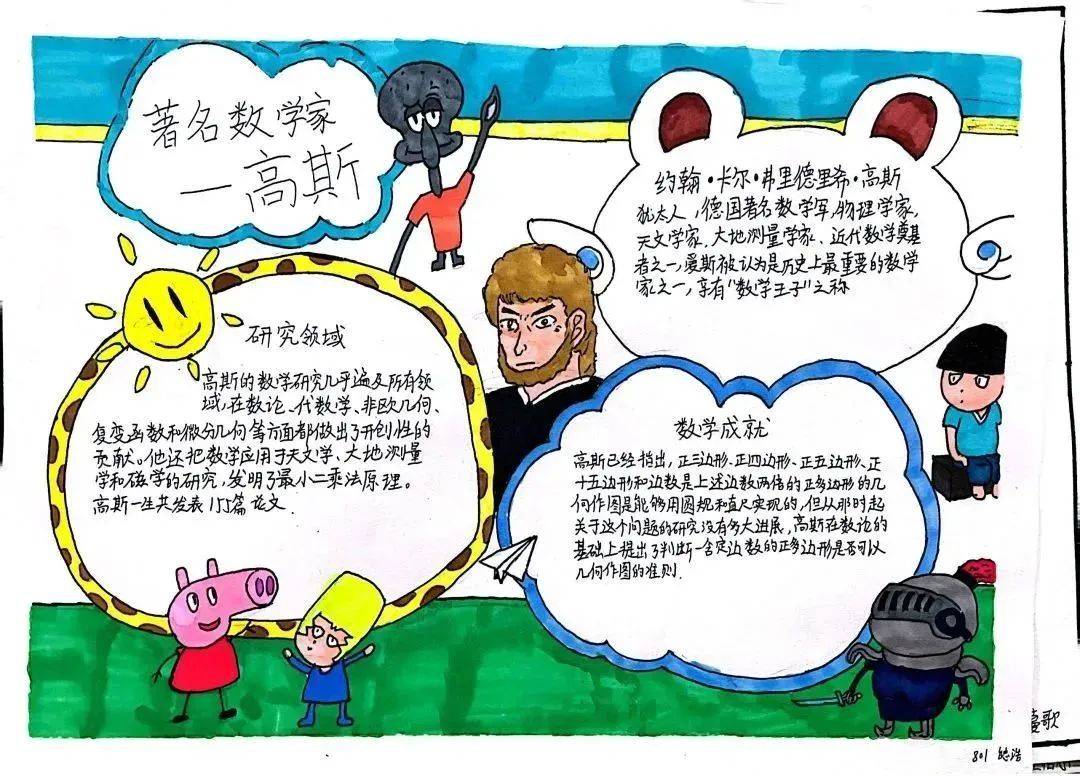 著名数学家
—高斯
约翰·卡尔·弗里德里希·高斯
犹太人,德国著名数学军,物理学家,
天文学家、大地测量学家、近代数学奠基
者之一,爱斯被认为是历史上最重要的数学
家之一,享有"数学王子"之称
研究领域
高斯的数学研究几乎遍及所有领
域,在数论、代数学、非欧几何、
复变函数和微分几何等方面都做出了开创性的
贡献。他还把数学应用于天文学、大地测量
学和磁学的研究,发明了最小二乘法原理。
高斯一生共发表155篇论文
数学成就
高斯已经指出,正三边形、正四边形、正五边形、正
十五边形和边数是上述边数两倍的正多边形的几
何作图是能够用圆规和直尺实现的,但从那时起
关于这个问题的研究没有多大进展,高斯在数论的
基础上提出了判断一含定边数的正多边形是否可以
几何作图的准则.
歌
801